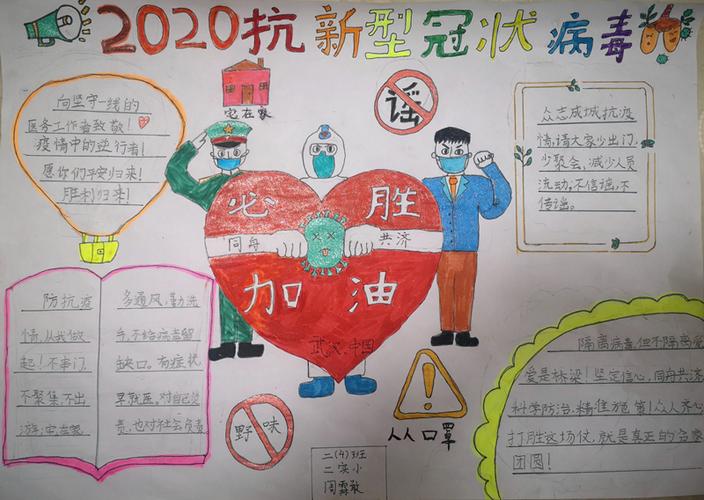 2020抗新型冠状病毒
向坚守一线的
医务工作者致敬!
疫情中的逆行者!
愿你们平安归来!
胜利归来!
宅在家
谣
众志成城抗疫
情,请大家少出门,
少聚会,减少人员
流动,不信谣,不
传谣。
必胜
同舟 共济
加油
武汉、中国
防抗疫
情,从我做
起!不串门,
不聚集,不出
游,宅在家
多通风,勤洗
手,不给病毒留
缺口。有症状
早就医,对自己负
责,也对社会负责
野味
人人口罩
二(4)班
二实小
周霖
隔离病毒,但不隔离爱
爱是桥梁!坚定信心,同舟共济
科学防治,精准施策!人人齐心
打胜这场仗,就是真正的合家
团圆!